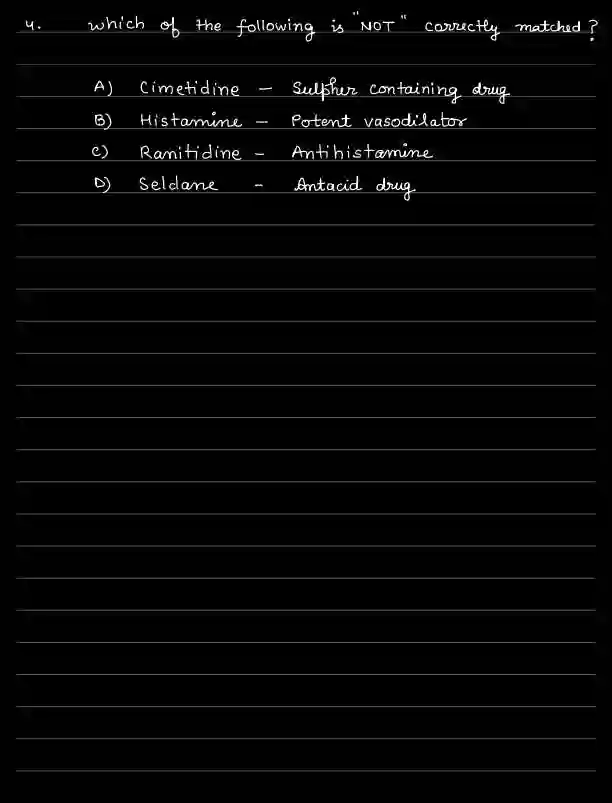 4. which of the following is "NOT" correctly matched ?
A) Cimetidine - Sulpher containing drug
B) Histamine - Potent vasodilator
C) Ranitidine - Antihistamine
D) Seldane - Antacid drug